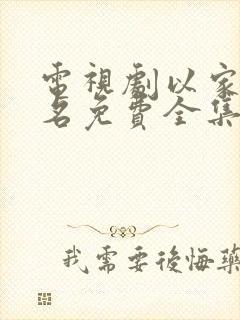 電視劇以家
名免費全集
我需要後悔藥